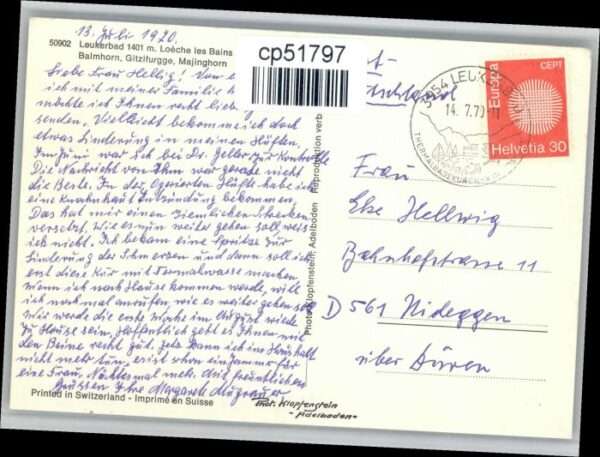 13. Juli 1970.
50902 Leukerbad 1401 m. Loèche les Bains
Balmhorn, Gitzifurgge, Majinghorn
cp51797
Liebe Frau Hellwig! Von
ich mit meiner Familie
möchte ich Ihnen recht liebe
senden. Vielleicht bekomme ich doch
etwas Linderung in meinen Hüften.
Im Juni war ich bei Dr. Zeller zur Kontrolle
Die Nachricht von Ihm war gerade nicht
die Beste. In der Operierten Hüfte habe ich
eine Knochenhautentzündung bekommen.
Das hat mir einen Ziemlichen Schrecken
versetzt. Wie es nun weiter gehen soll, weis
ich nicht. Ich bekam eine Spritze zur
Linderung der Schmerzen und dann soll ich
erst diese Kur mit Termalwasser machen
Wann ich nach Hause kommen werde, will
ich noch mal anrufen, wie es weiter gehen soll
Wir werde die erste Woche im August wieder
zu Hause sein. Hoffentlich geht es Ihnen mit
den Beine recht gut. Zele kann ich im Haushalt
nicht mehr tun, es ist schon ein Jammer für
eine Frau. Nächtesmal mehr. Mit freundlichen
Grüssen Ihre Margareth
Printed in Switzerland - Imprimé en Suisse
Photo Klopfenstein, Adelboden Reproduction verb
Phot. Klopfenstein
-Adelboden-
3954 LEUKERBAD
14.7.70-11
THERMALBADEKURORT
Europa
CEPT
Helvetia 30
Frau
Else Hellwig
Bahnhofstrasse 11
D 561 Nideggen
über Düren